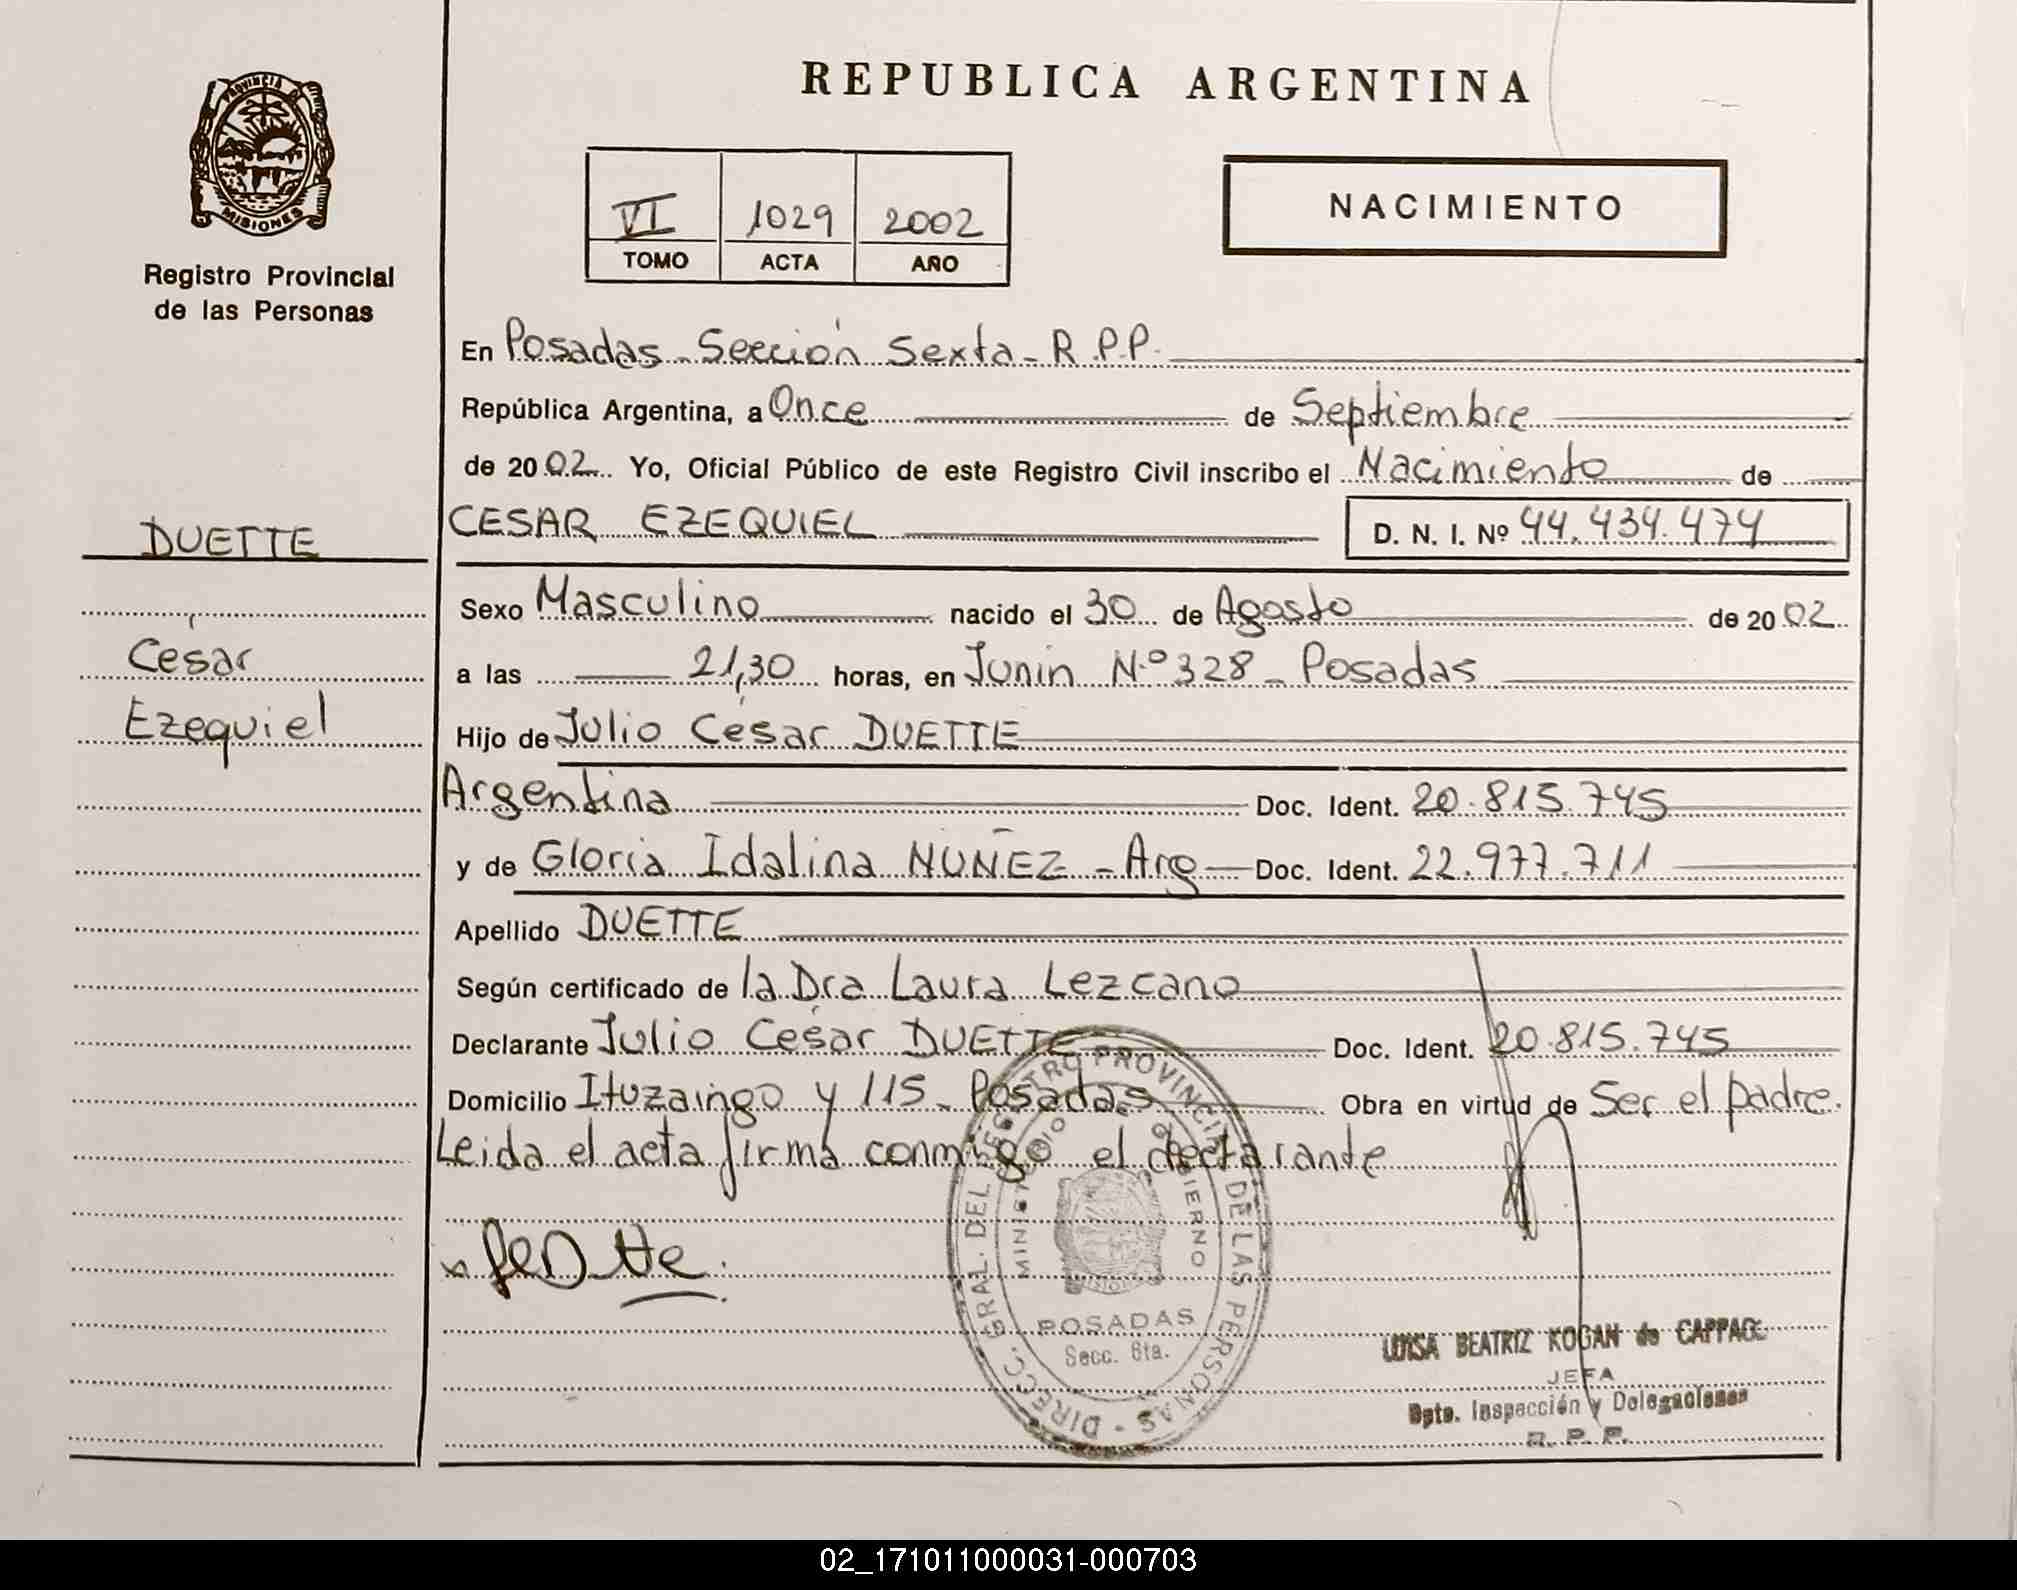 REPUBLICA ARGENTINA
PROVINCIA DE
MISIONES
Registro Provincial
de las Personas
VI 1029 2002
TOMO ACTA AÑO
NACIMIENTO
En Posadas - Sección Sexta - R.P.P.
República Argentina, a Once de Septiembre
de 2002 Yo, Oficial Público de este Registro Civil inscribo el Nacimiento de
DUETTE
CESAR EZEQUIEL D. N. I. Nº 44.434.474
Sexo Masculino nacido el 30 de Agosto de 2002
César
a las 21,30 horas, en Junin N.º 328 - Posadas
Ezequiel
Hijo de Julio César DUETTE
Argentina Doc. Ident. 20.815.745
y de Gloria Idalina NUÑEZ - Arg Doc. Ident. 22.977.711
Apellido DUETTE
Según certificado de la Dra Laura Lezcano
Declarante Julio César DUETTE Doc. Ident. 20.815.745
Domicilio Ituzaingo y 115 - Posadas Obra en virtud de Ser el padre.
Leida el acta firma conmigo el declarante
DIRECC. GRAL. DEL REGISTRO PROVINCIAL DE LAS PERSONAS
MINISTERIO DE GOBIERNO
MISIONES
POSADAS
Secc. 6ta.
LUISA BEATRIZ KOGAN de
JEFA
Dpto. Inspección y Delegaciones
R. P. P.
02_171011000031-000703